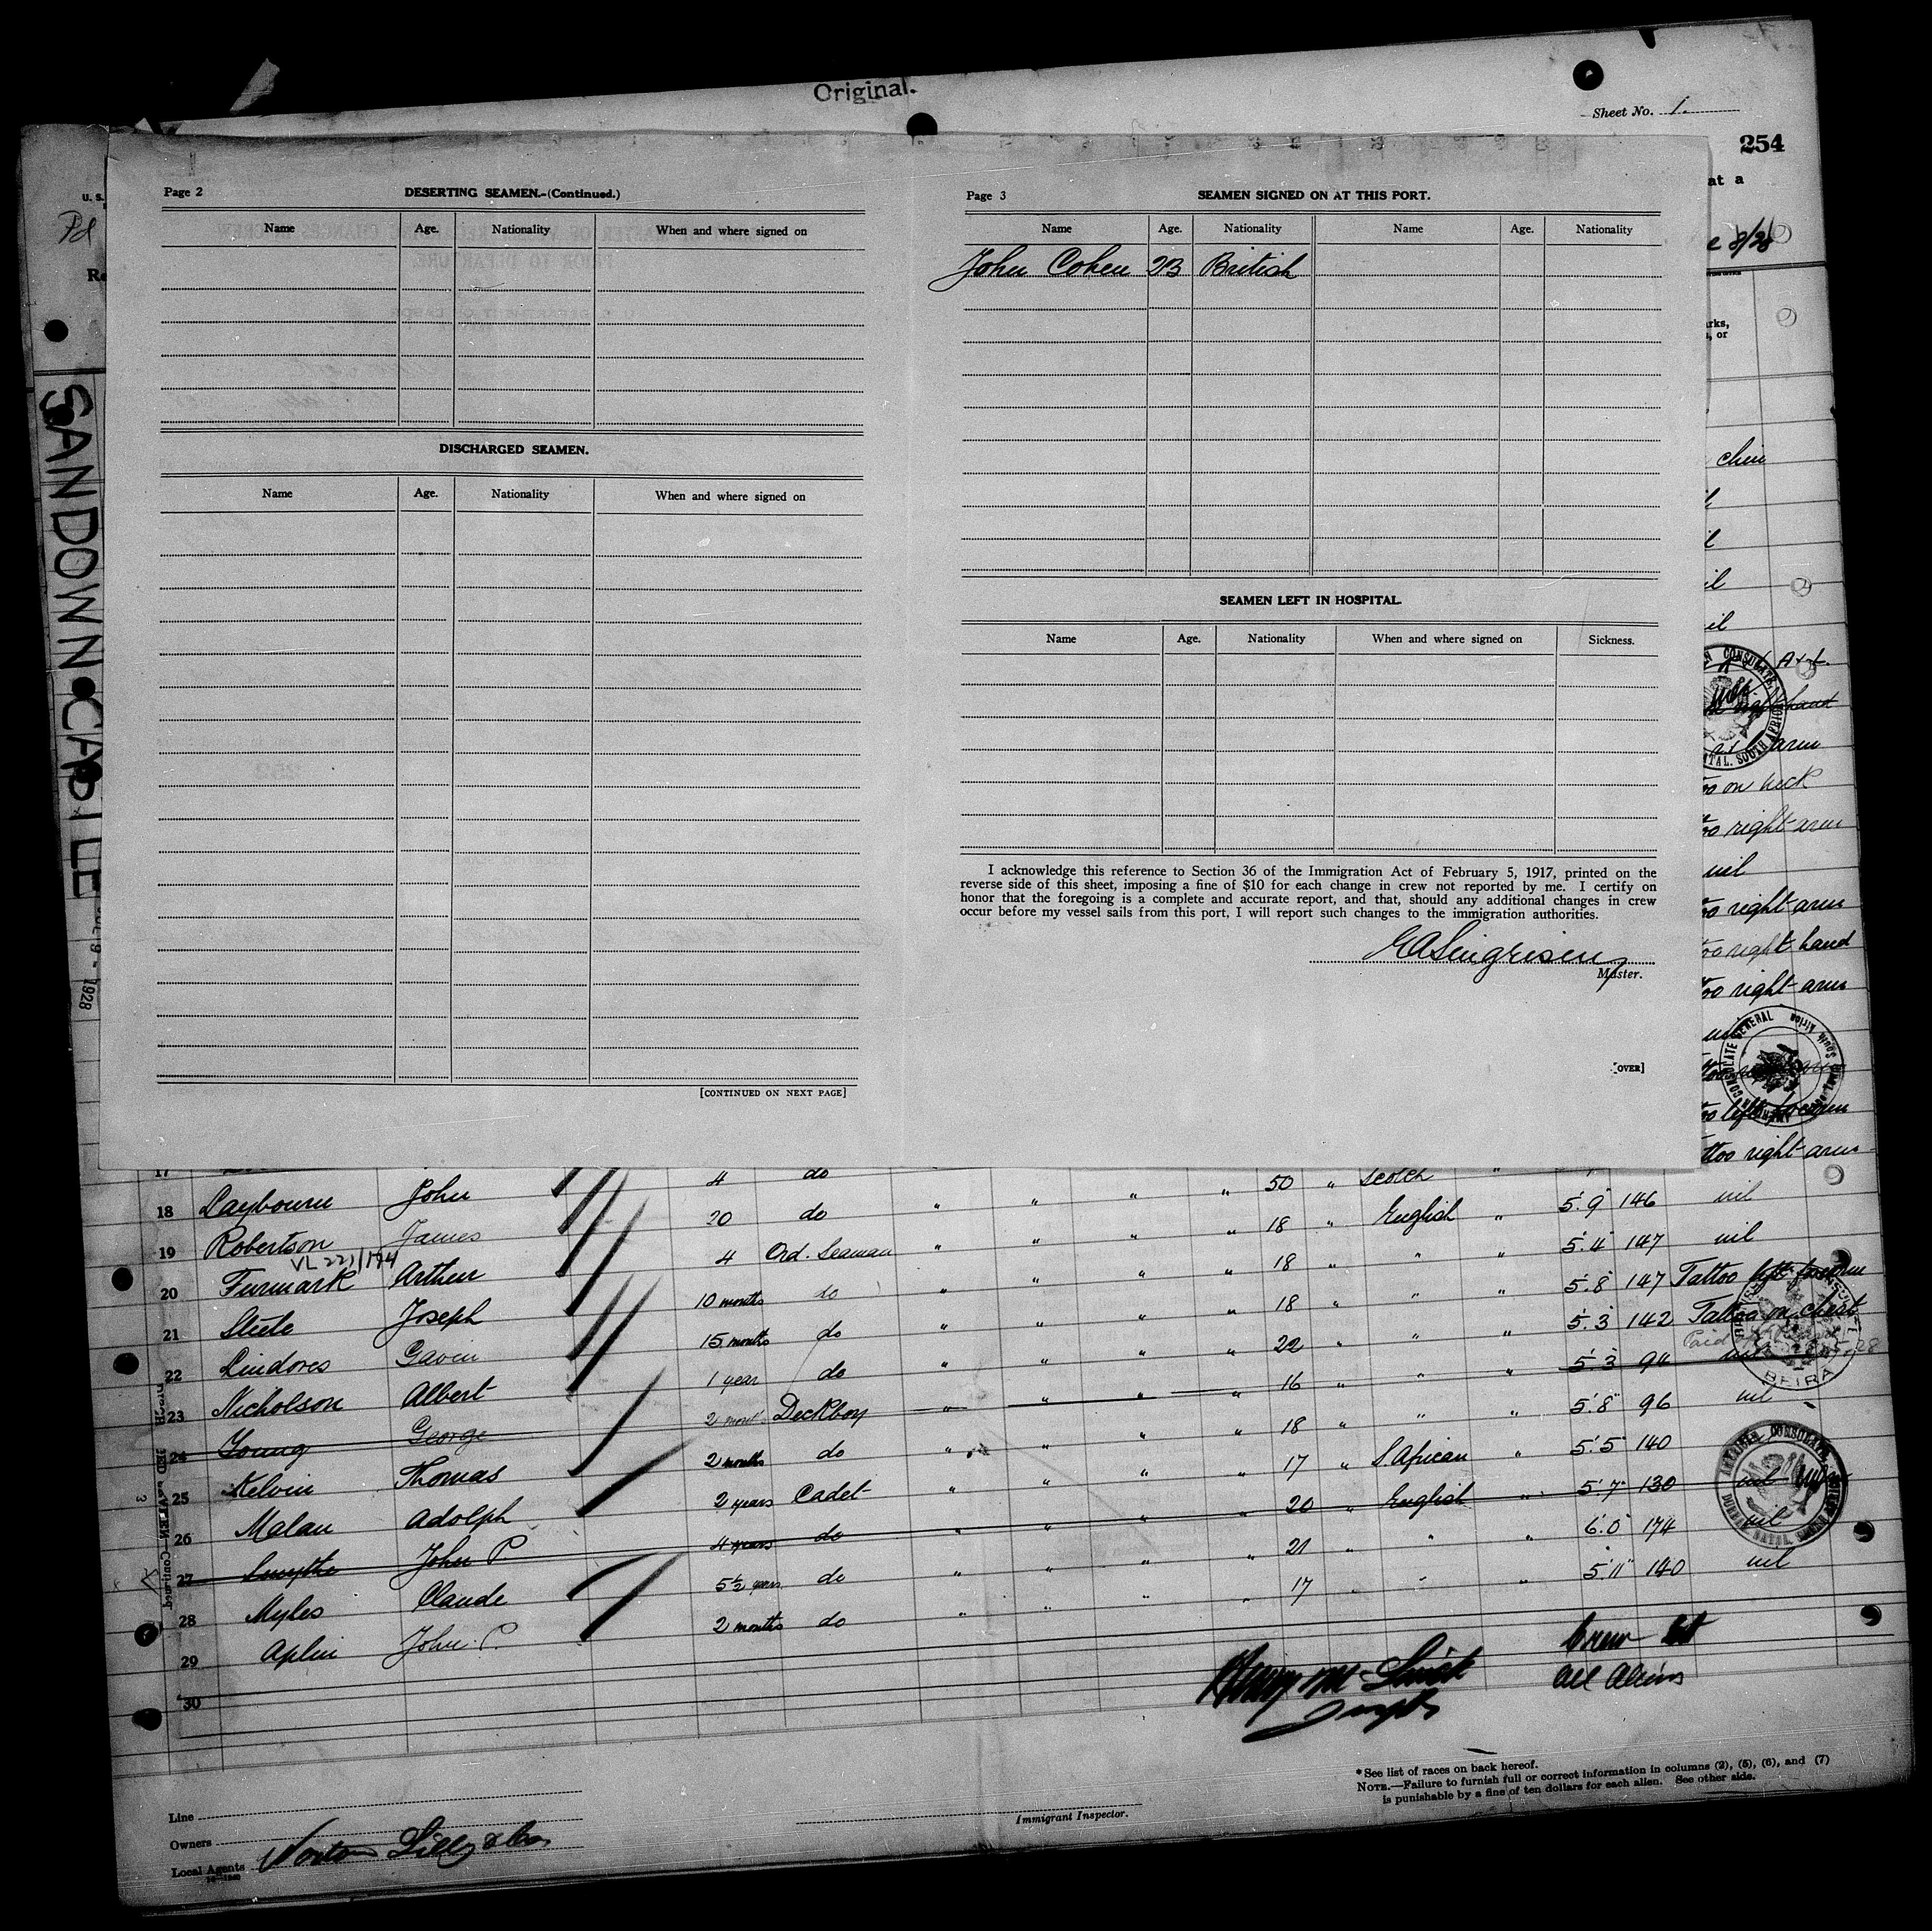 Original.
Sheet No. 1.
254
at a
U. S.
Pd
Re
e 8/28
rks,
, or
SANDOWN CASTLE
1928
Page 2
DESERTING SEAMEN.-(Continued.)
Name Age. Nationality When and where signed on
DISCHARGED SEAMEN.
Name Age. Nationality When and where signed on
[CONTINUED ON NEXT PAGE]
Page 3
SEAMEN SIGNED ON AT THIS PORT.
Name Age. Nationality Name Age. Nationality
John Cohen 23 British
SEAMEN LEFT IN HOSPITAL.
Name Age. Nationality When and where signed on Sickness.
I acknowledge this reference to Section 36 of the Immigration Act of February 5, 1917, printed on the
reverse side of this sheet, imposing a fine of $10 for each change in crew not reported by me. I certify on
honor that the foregoing is a complete and accurate report, and that, should any additional changes in crew
occur before my vessel sails from this port, I will report such changes to the immigration authorities.
Master.
[OVER]
chin
il
il
il
arm
oo on neck
oo right arm
nil
oo right arm
oo right hand
oo right arm
ttoo right arm
17 4 do 50 " Scotch "
18 Laybourn John 20 do " " " " 18 " English " 5'.9" 146 nil
19 Robertson James 4 Ord. Seaman " " " " 18 " " " 5'.4" 147 nil
VL 221/194
20 Furmark Arthur 10 months do " " " " 18 " " " 5'.8" 147 Tattoo left forearm
21 Steele Joseph 15 months do " " " " 22 " " " 5'.3" 142 Tattoo on chest
22 Lindores Gavin 1 year do " " " " 16 " " " 5'.3" 94 nil
23 Nicholson Albert 2 mont. Deckboy " " " " 18 " " " 5'.8" 96 nil
24 Young George 2 months do " " " " 17 " S. African " 5'.5" 140
25 Kelvin Thomas 2 years Cadet " " " " 20 " English " 5'.7" 130 nil
26 Malan Adolph 4 years do " " " " 21 " " " 6'.0" 174 nil
27 Smythe John P. 5½ years do " " " " 17 " " " 5'.11" 140 nil
28 Myles Claude 2 months do " " " "
29 Aplin John P.
30
Crew list
All Aliens
AMERICAN CONSULATE
DURBAN NATAL. SOUTH AFRICA
CONSULATE GENERAL
BEIRA
Line
Owners
Local Agents Norton Lilly & Co
Immigrant Inspector.
* See list of races on back hereof.
NOTE.—Failure to furnish full or correct information in columns (2), (5), (6), and (7)
is punishable by a fine of ten dollars for each alien. See other side.